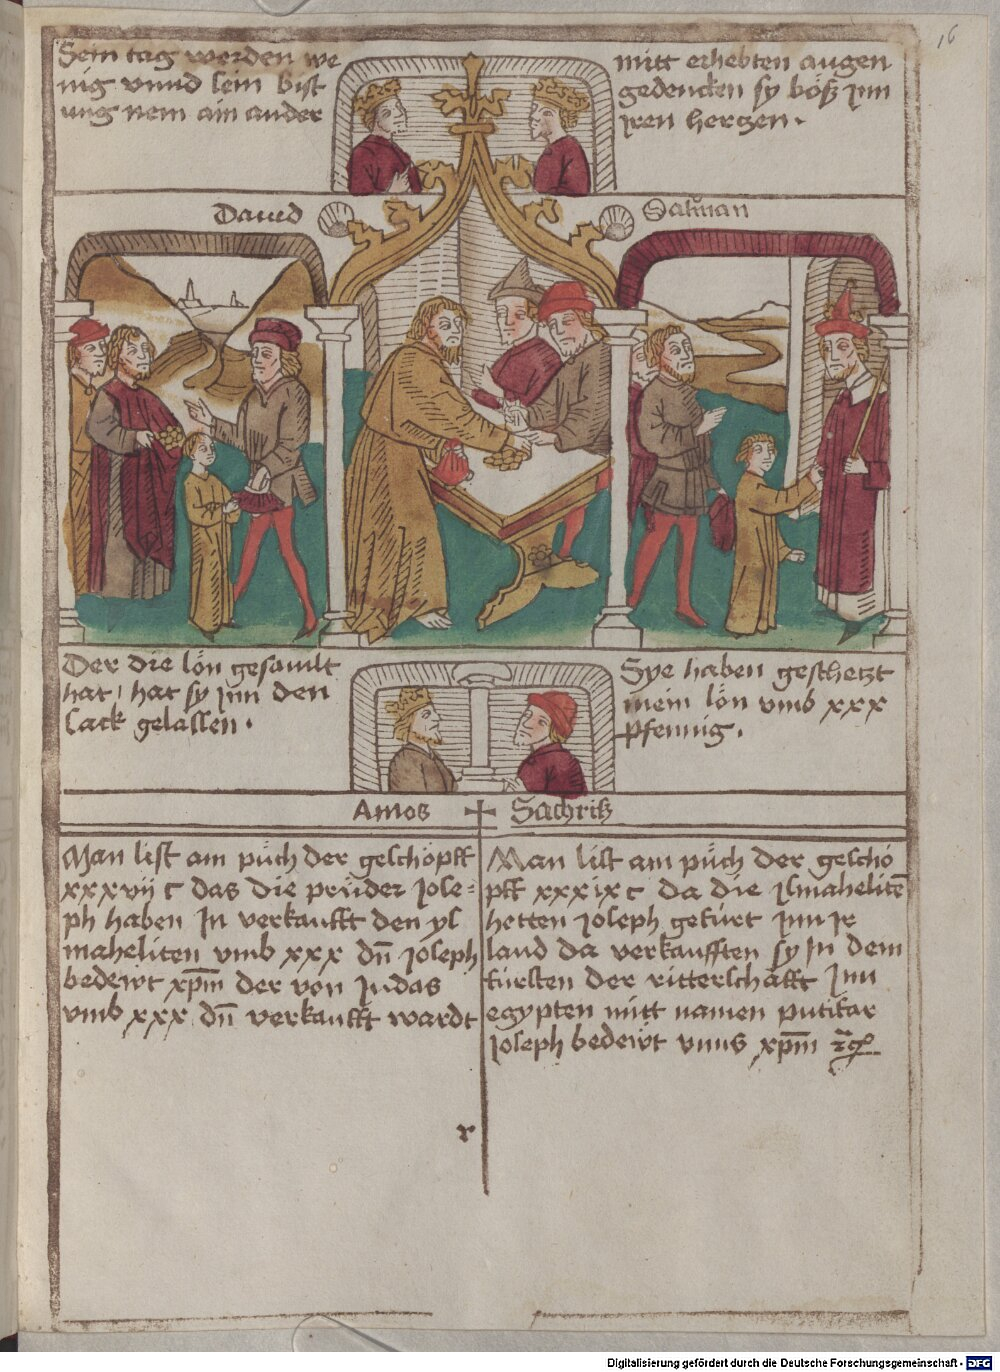 16
Sein tag werden we
nig vnnd sein bist
ung nem ain ander
mitt erhebten augen
gedencken sy böß jnn
jren hertzen .
Dauid
Salman
Der die lön gesamlt
hat / hat sy jnn den
sack gelassen .
Sye haben geschetzt
mein lön vmb xxx
pfennig .
Amos
Sachriß
Man list am püch der geschöpff
xxxvij c das die prüder Jose=
ph haben In verkaufft den ys
maheliten vmb xxx dn̄ Joseph
bedewt xp̄m der von Judas
vmb xxx dn̄ verkaufft wardt
Man list am püch der geschö
pff xxxix c da die Jsmahelitē
hetten Joseph gefürt jnn jr
land da verkaufften sy In dem
fürsten der ritterschafft jnn
egypten mitt namen putifar
Joseph bedewt vnns xp̄m
r
Digitalisierung gefördert durch die Deutsche Forschungsgemeinschaft - DFG